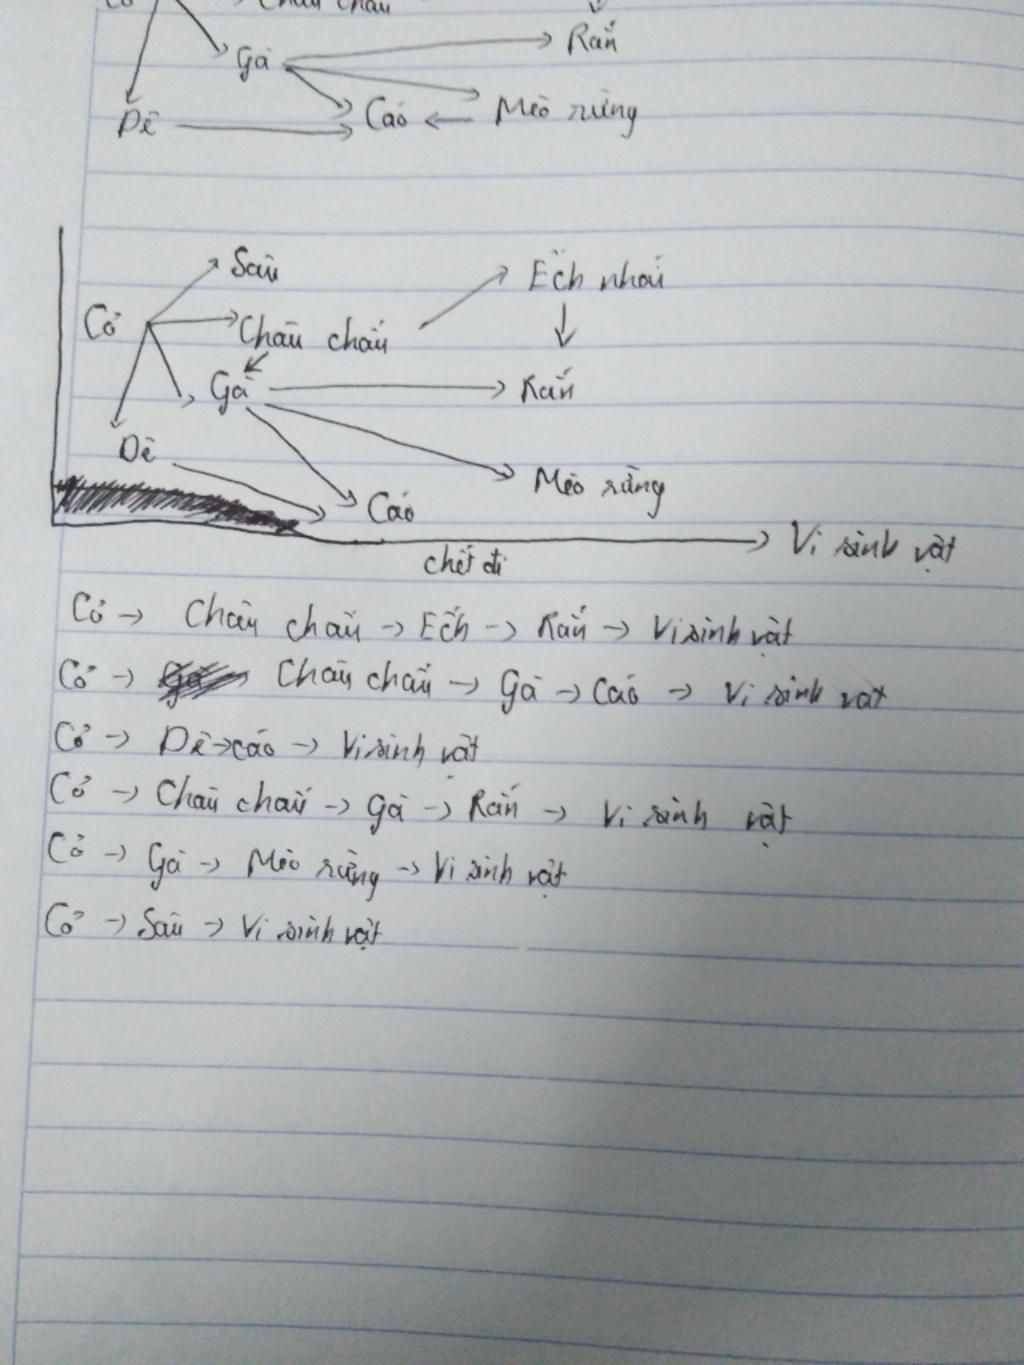 Châu chấu
Gà → Rắn
Dê → Cáo ← Mèo rừng
Sâu
Ếch nhái
Cỏ → Châu chấu
Gà → Rắn
Dê
Mèo rừng
Cáo
→ Vi sinh vật
chết đi
Cỏ → Châu chấu → Ếch → Rắn → Vi sinh vật
Cỏ → Châu chấu → Gà → Cáo → Vi sinh vật
Cỏ → Dê → cáo → Vi sinh vật
Cỏ → Châu chấu → Gà → Rắn → Vi sinh vật
Cỏ → Gà → Mèo rừng → Vi sinh vật
Cỏ → Sâu → Vi sinh vật